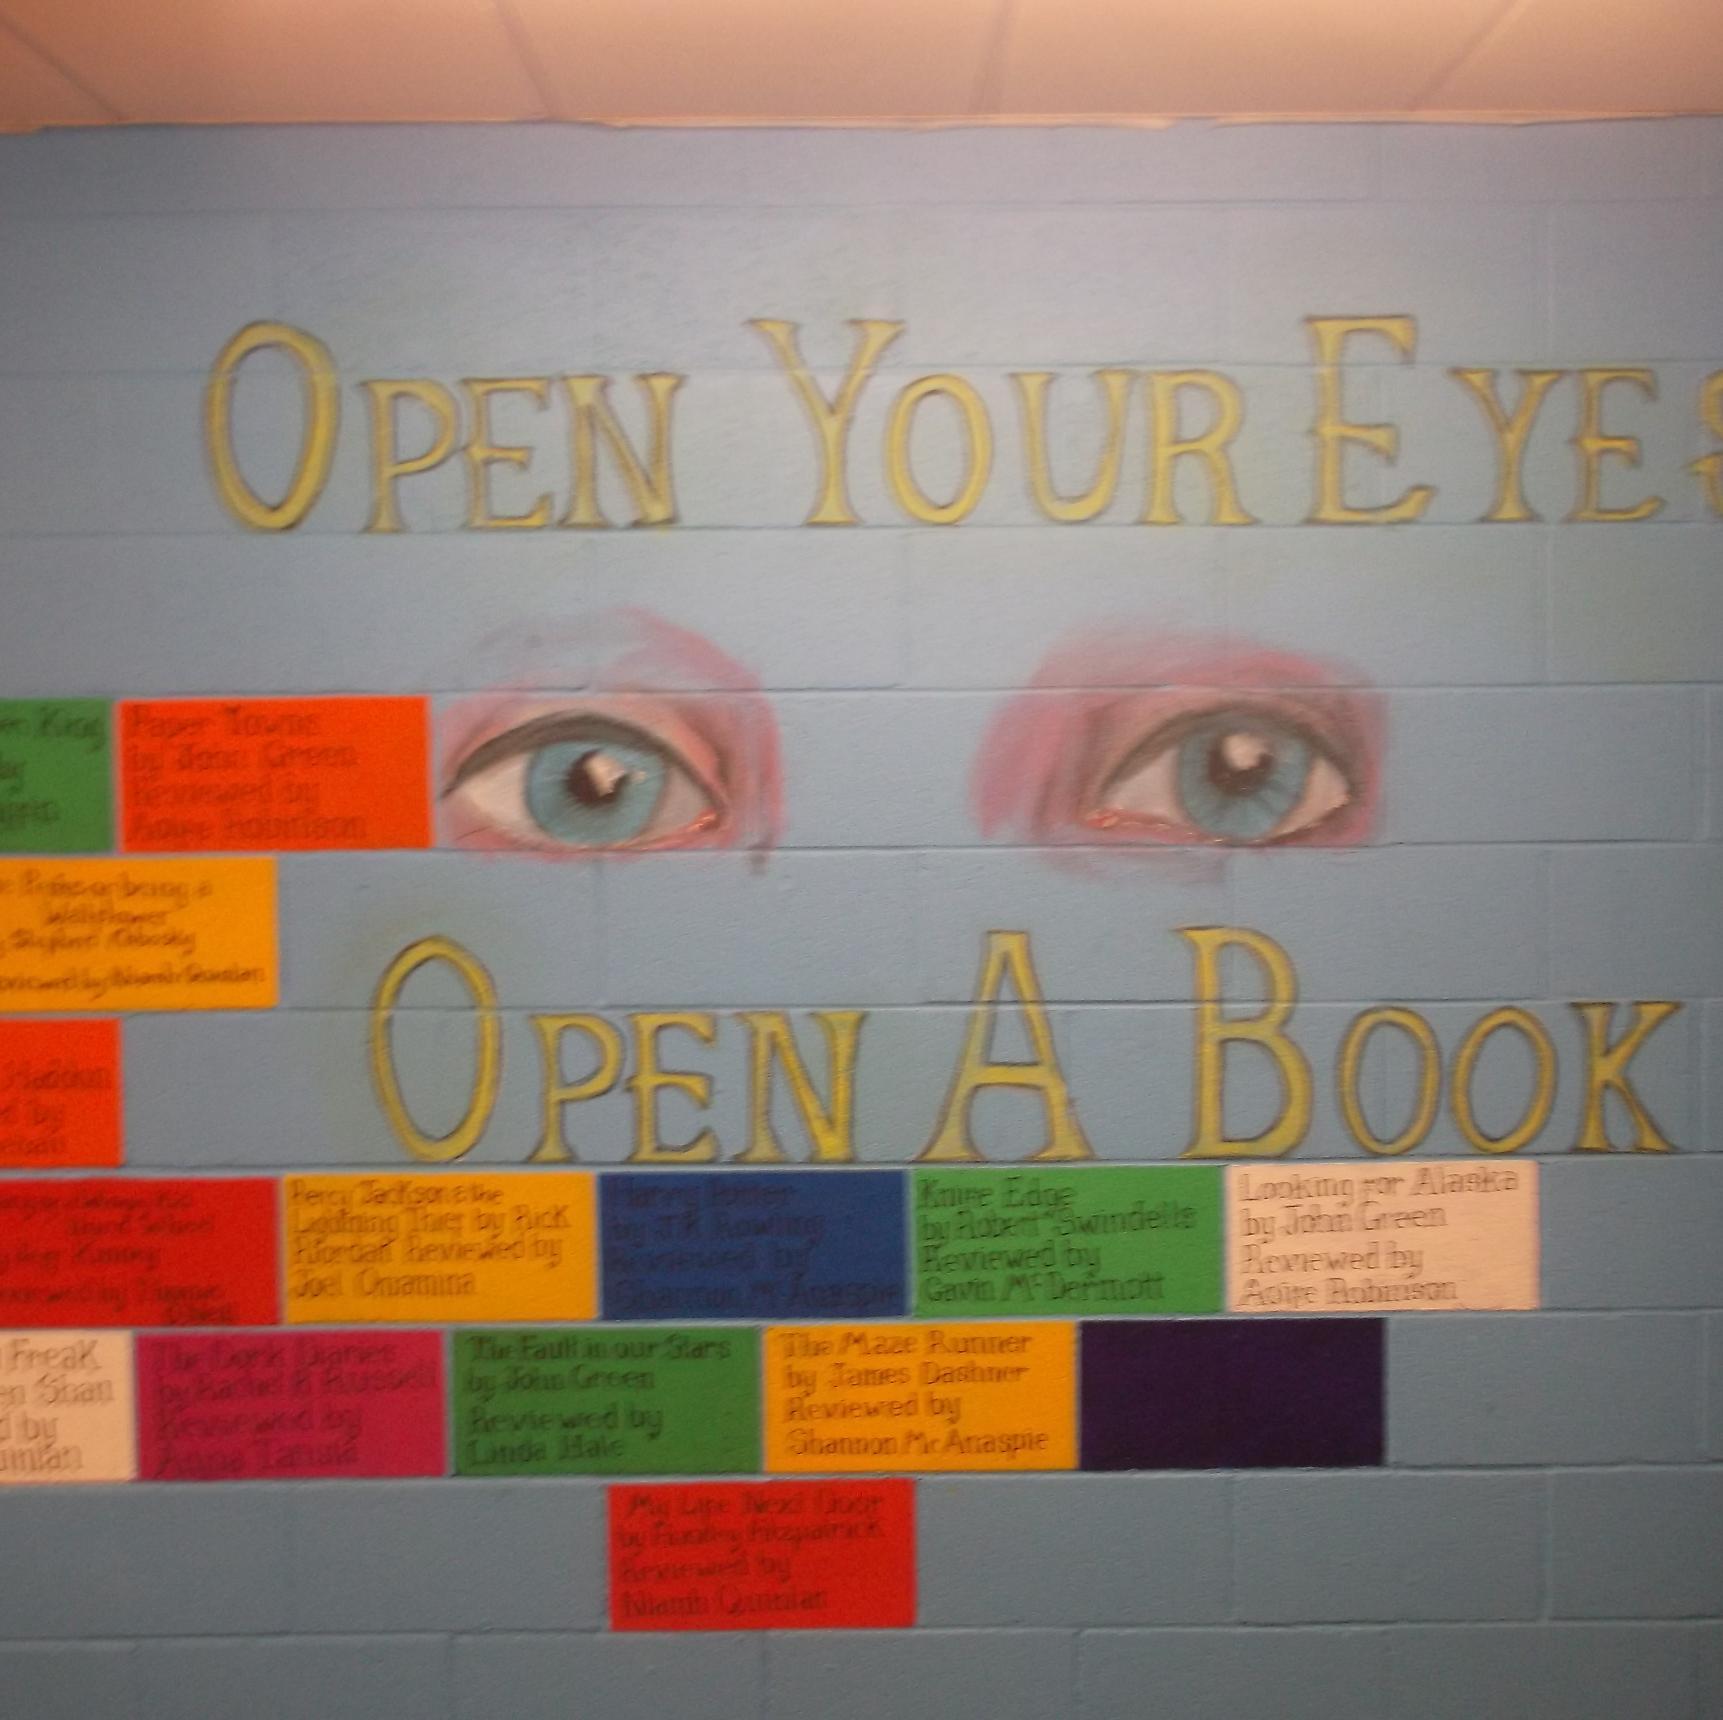 OPEN YOUR EYES
King
by
Paper Towns
by John Green
Reviewed by
Aoife Robinson
being a
Wallflower
Stephen Chbosky
Reviewed by Niamh Quinlan
OPEN A BOOK
Haddon
by
Kid
Kinney
Reviewed by
Percy Jackson & the
Lightning Thief by Rick
Riordan Reviewed by
Joel Omamina
Harry Potter
by J.K Rowling
Reviewed by
Shannon McAnaspie
Knife Edge
by Robert Swindells
Reviewed by
Gavin McDermott
Looking for Alaska
by John Green
Reviewed by
Aoife Robinson
Freak
Shan
by
The Dork Diaries
by Rachel R Russell
Reviewed by
Anna
The Fault in our Stars
by John Green
Reviewed by
Linda Hale
The Maze Runner
by James Dashner
Reviewed by
Shannon McAnaspie
My Life Next Door
by Huntley Fitzpatrick
Reviewed by
Niamh Quinlan